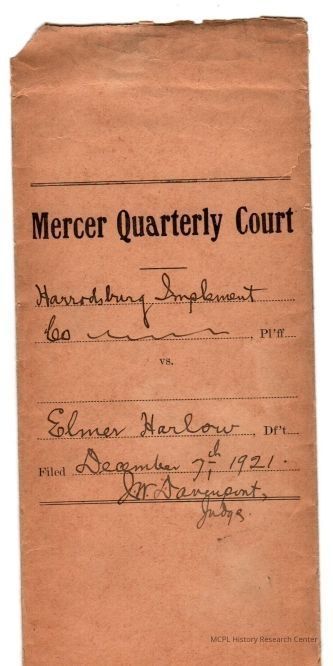 Mercer Quarterly Court
Harrodsburg Implement
Co , Pl'ff
vs.
Elmer Harlow , Df't
Filed December 7th 1921.
J.W. Davenport,
Judge
MCPL History Research Center